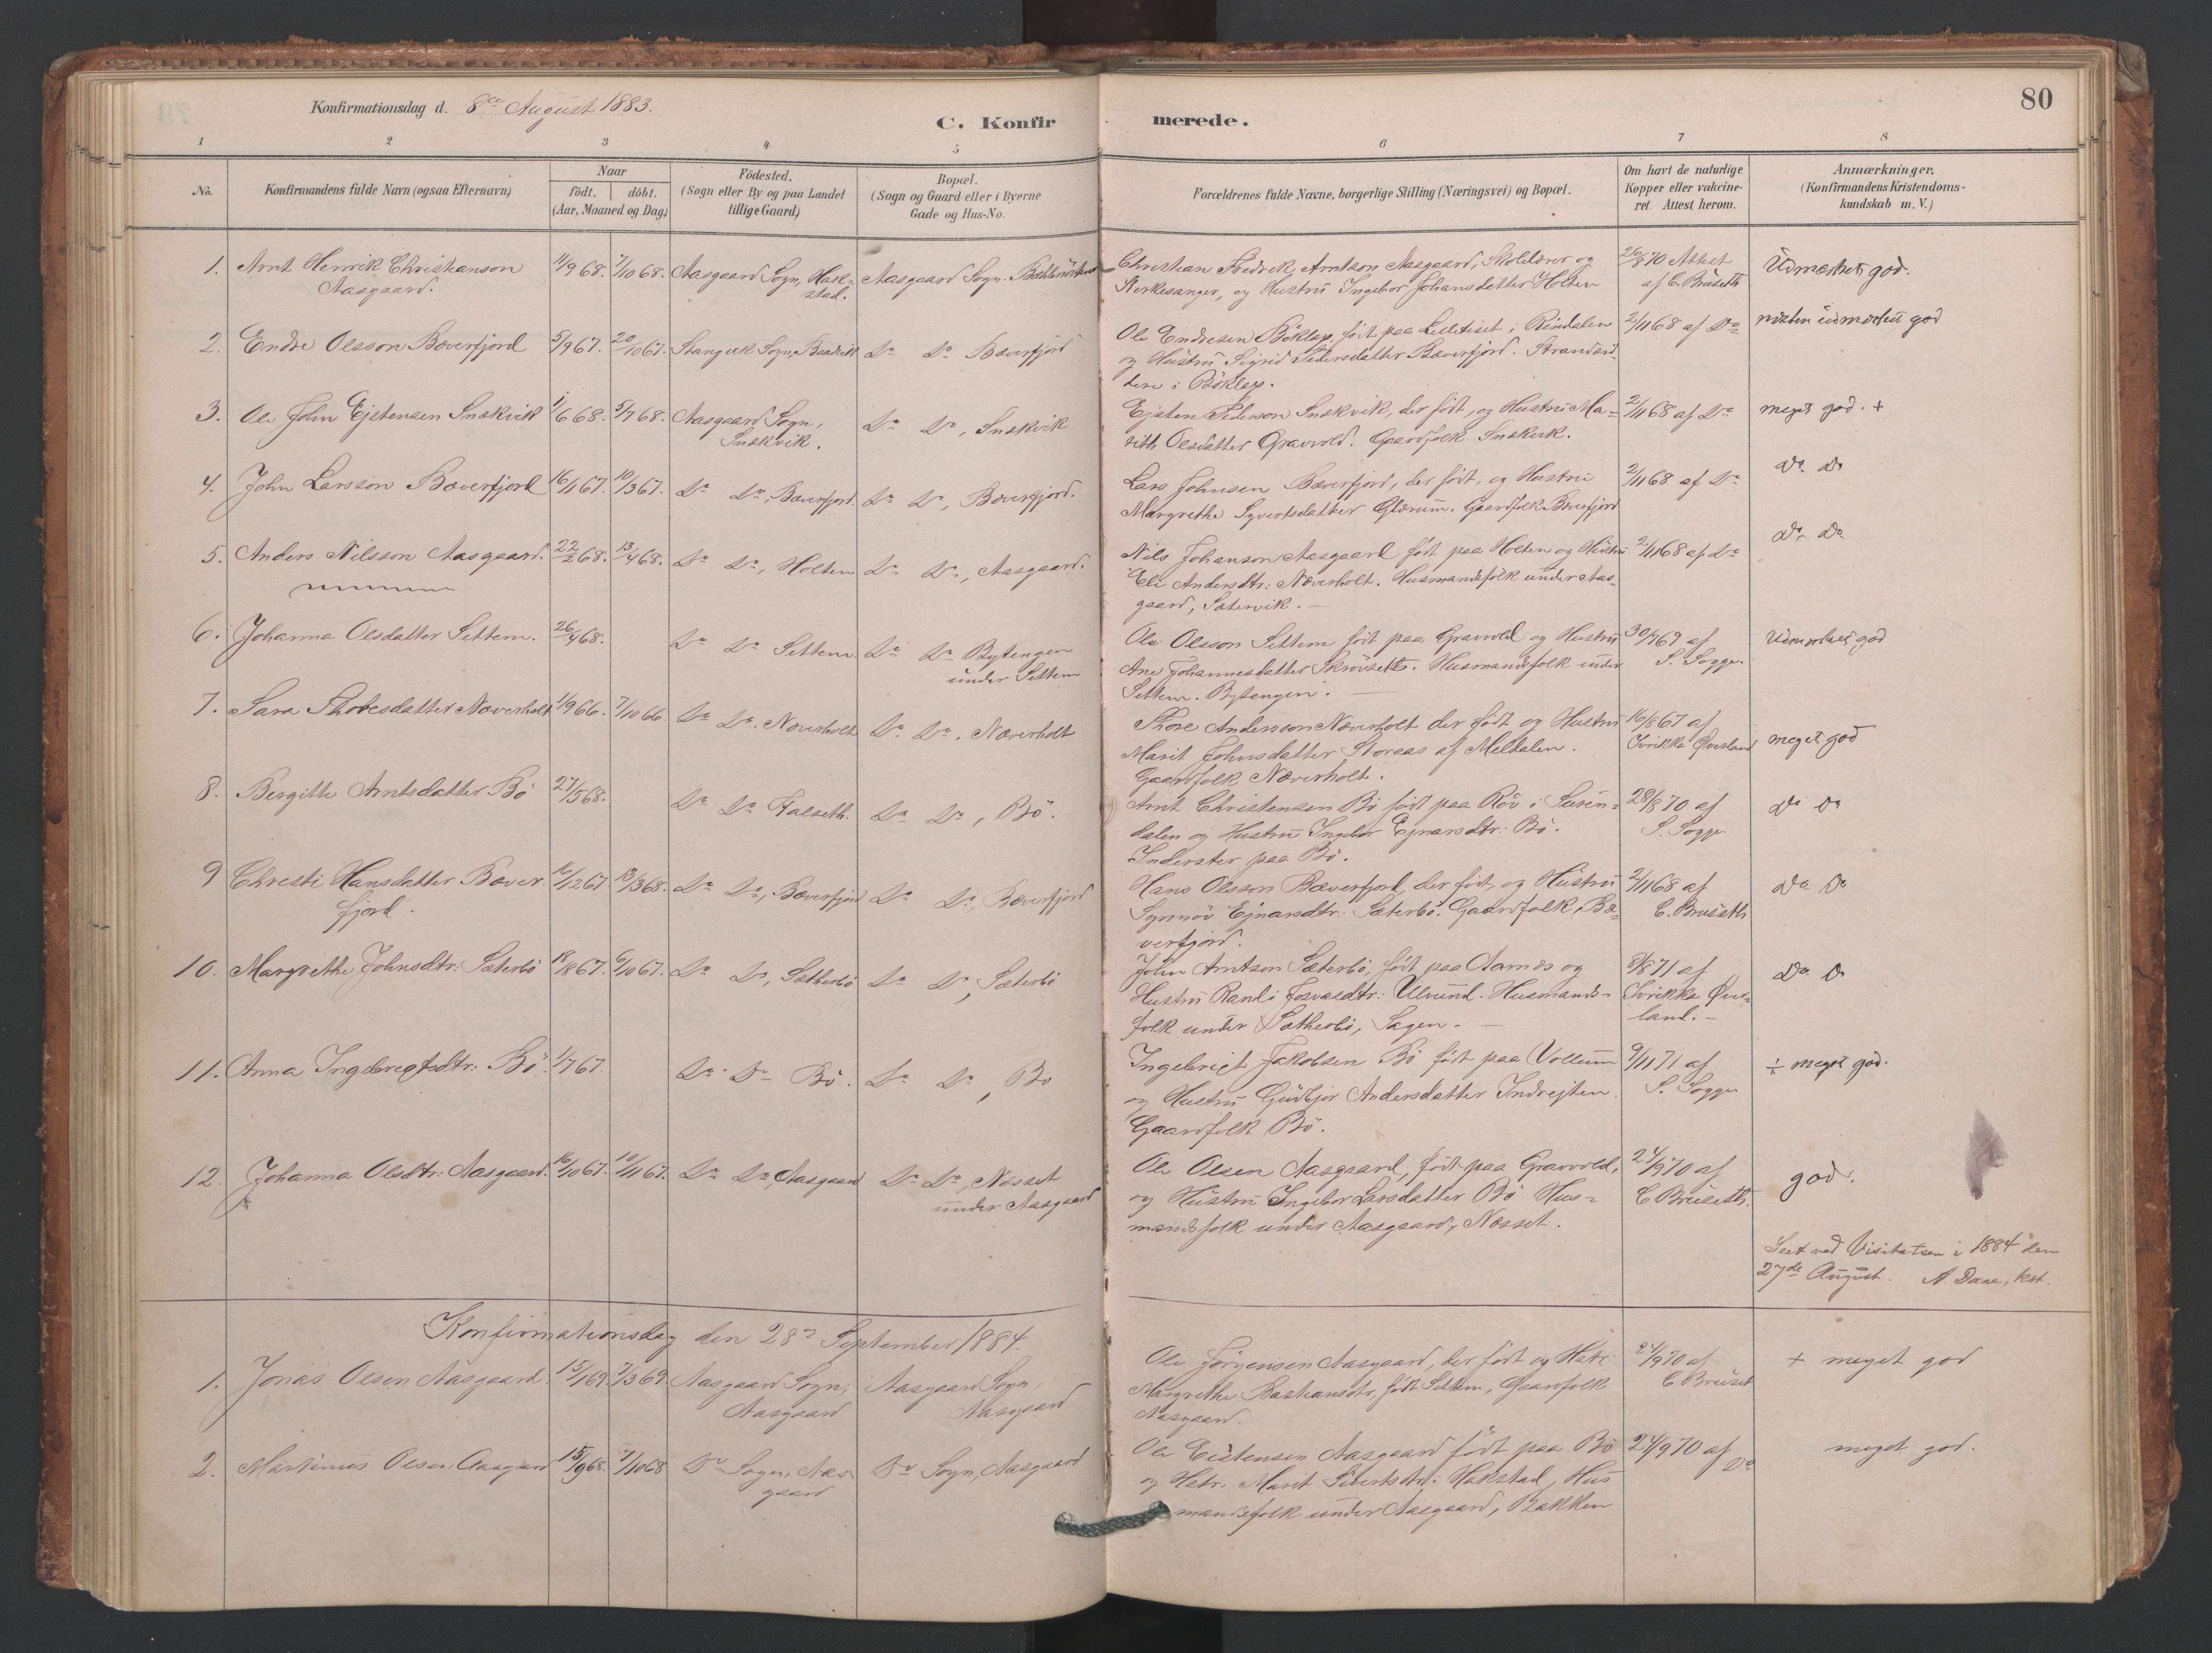 80
Konfirmationsdag d. 8de August 1883.
C. Konfirmerede.
1 2 3 4 5 6 7 8
No.
Konfirmandens fulde Navn (ogsaa Efternavn)
Naar
født. døbt.
(Aar, Maaned og Dag)
Fødested.
(Sogn eller By og paa Landet
tillige Gaard)
Bopæl.
(Sogn og Gaard eller i Byerne
Gade og Hus-No.
Forældrenes fulde Navne, borgerlige Stilling (Næringsvei) og Bopæl.
Om havt de naturlige
Kopper eller vakcine-
ret. Attest herom.
Anmærkninger.
(Konfirmandens Kristendoms-
kundskab m. V.)
1. Arnt Henrik Christianson
Aasgaard.
11/9 68. 7/10 68.
Aasgaard Sogn, Hak-
stad.
Aasgaard Sogn.
Christian Fredrik Arntson Aasgaard, Skolelærer og
Kirkesanger, og Hustru Ingebor Johansdatter Holten
26/8 70 Attest
af C. Bruseth
Udmærket god.
2. Endre Olsson Bæverfjord
5/9 67. 20/10 67.
Stangvik Sogn,
Do Do Bæverfjord
Ole Endresen Böklep, født paa Lilletiset i Rindalen
og Hustru Sigrid Pedersdatter Bæverfjord. Strandsid-
dere i Böklep.
2/11 68 af Do
næsten udmærket god
3. Ole John Ejstensen Snekvik
1/6 68. 5/7 68.
Aasgaard Sogn,
Snekvik.
Do Do, Snekvik
Ejsten Pederson Snekvik, der født, og Hustru Ma-
rith Olsdatter Gravvold. Gaardfolk Snekvik.
2/11 68 af Do
meget god. +
4. John Larsson Bæverfjord
16/1 67. 10/3 67.
Do Do, Bæverfjord.
Do Do, Bæverfjord.
Lars Johnsen Bæverfjord, der født, og Hustru
Margrethe Syvertsdatter Glærum. Gaardfolk Bæverfjord
2/11 68 af Do
Do Do
5. Anders Nilsson Aasgaard.
22/2 68. 13/4 68.
Do Do, Holten
Do Do, Aasgaard.
Nils Johanson Aasgaard født paa Holten og Hustru
Eli Andersdtr: Næverholt. Husmandsfolk under Aas-
gaard, Sætervik.
2/11 68 af Do
Do Do
6. Johanna Olsdatter Settem.
26/4 68.
Do Do Settem
Do Do Bytengen
under Settem
Ole Olsson Settem født paa Gravvold og Hustru
Ane Johannesdatter Skrövseth. Husmandsfolk under
Settem. Bytengen.
30/7 69 af
S. Sogge.
Udmærket god
7. Sara Thoresdatter Næverholt
11/9 66. 7/10 66.
Do Do. Næverholt
Do Do. Næverholt
Thore Andersson Næverholt der født og Hustru
Marit Johnsdatter Storaas af Meldalen.
Gaardfolk Næverholt.
16/8 67 af
Ivrikka Øverland
meget god
8. Birgitte Arntsdatter Bö
27/5 68.
Do Do Halseth.
Do Do, Bö.
Arnt Christensen Bö født paa Röv i Suren-
dalen og Hustru Ingebor Ejnarsdtr: Bö.
Inderster paa Bö.
28/8 70 af
S. Sogge
Do Do
9 Christi Hansdatter Bæver-
fjord.
16/12 67 13/3 68.
Do Do, Bæverfjord
Do Do, Bæverfjord
Hans Olsson Bæverfjord, der født, og Hustru
Synnöv Ejnarsdtr: Sæterbö. Gaardfolk, Bæ-
verfjord.
2/11 68 af
C. Bruseth
Do Do
10. Margrethe Johnsdtr: Sæterbö
18/8 67. 6/10 67.
Do Do, Sætherbö
Do Do, Sæterbö
John Arntson Sæterbö, født paa Aamos og
Hustru Randi Tosvasdtr: Ulvund. Husmands-
folk under Sætherbö, Sagen.
8/8 71 af
Ivrikka Øver-
land.
Do Do
11. Anna Ingebrigtsdtr: Bö.
1/7 67.
Do Do Bö.
Do Do, Bö
Ingebrigt Jakobsen Bö født paa Vollum
og Hustru Gudbjör Andersdatter Indrejten.
Gaardfolk Bö.
9/11 71 af
S. Sogge
÷ meget god.
12. Johanna Olsdtr: Aasgaard.
16/10 67. 10/11 67.
Do Do, Aasgaard
Do Do, Næsset
under Aasgaard
Ole Olsen Aasgaard, født paa Gravvold,
og Hustru Ingebor Larsdatter Bö Hus-
mandsfolk under Aasgaard, Næsset.
24/9 70 af
C Bruseth.
god.
Seet ved Visitatsen i 1884 den
27de August. A. Daae, kst.
Konfirmationsdag den 28de September 1884.
1. Jonas Olsen Aasgaard.
15/1 69. 7/3 69.
Aasgaard Sogn,
Aasgaard
Aasgaard Sogn,
Aasgaard
Ole Jörgensen Aasgaard, der født og Hstr:
Margrethe Bastiansdtr, født Settem, Gaardfolk
Aasgaard.
24/9 70 af
C Bruset
+ meget god
2. Martinus Olsen Aasgaard
15/9 68. 7/10 68
Do Sogn, Aas-
gaard
Do Sogn, Aasgaard
Ole Eistensen Aasgaard født paa Bö
og Hstr. Marit Sivertsdtr: Hakstad, Hus
mandsfolk under Aasgaard, Bakken
24/9 70 af
Do
meget god.